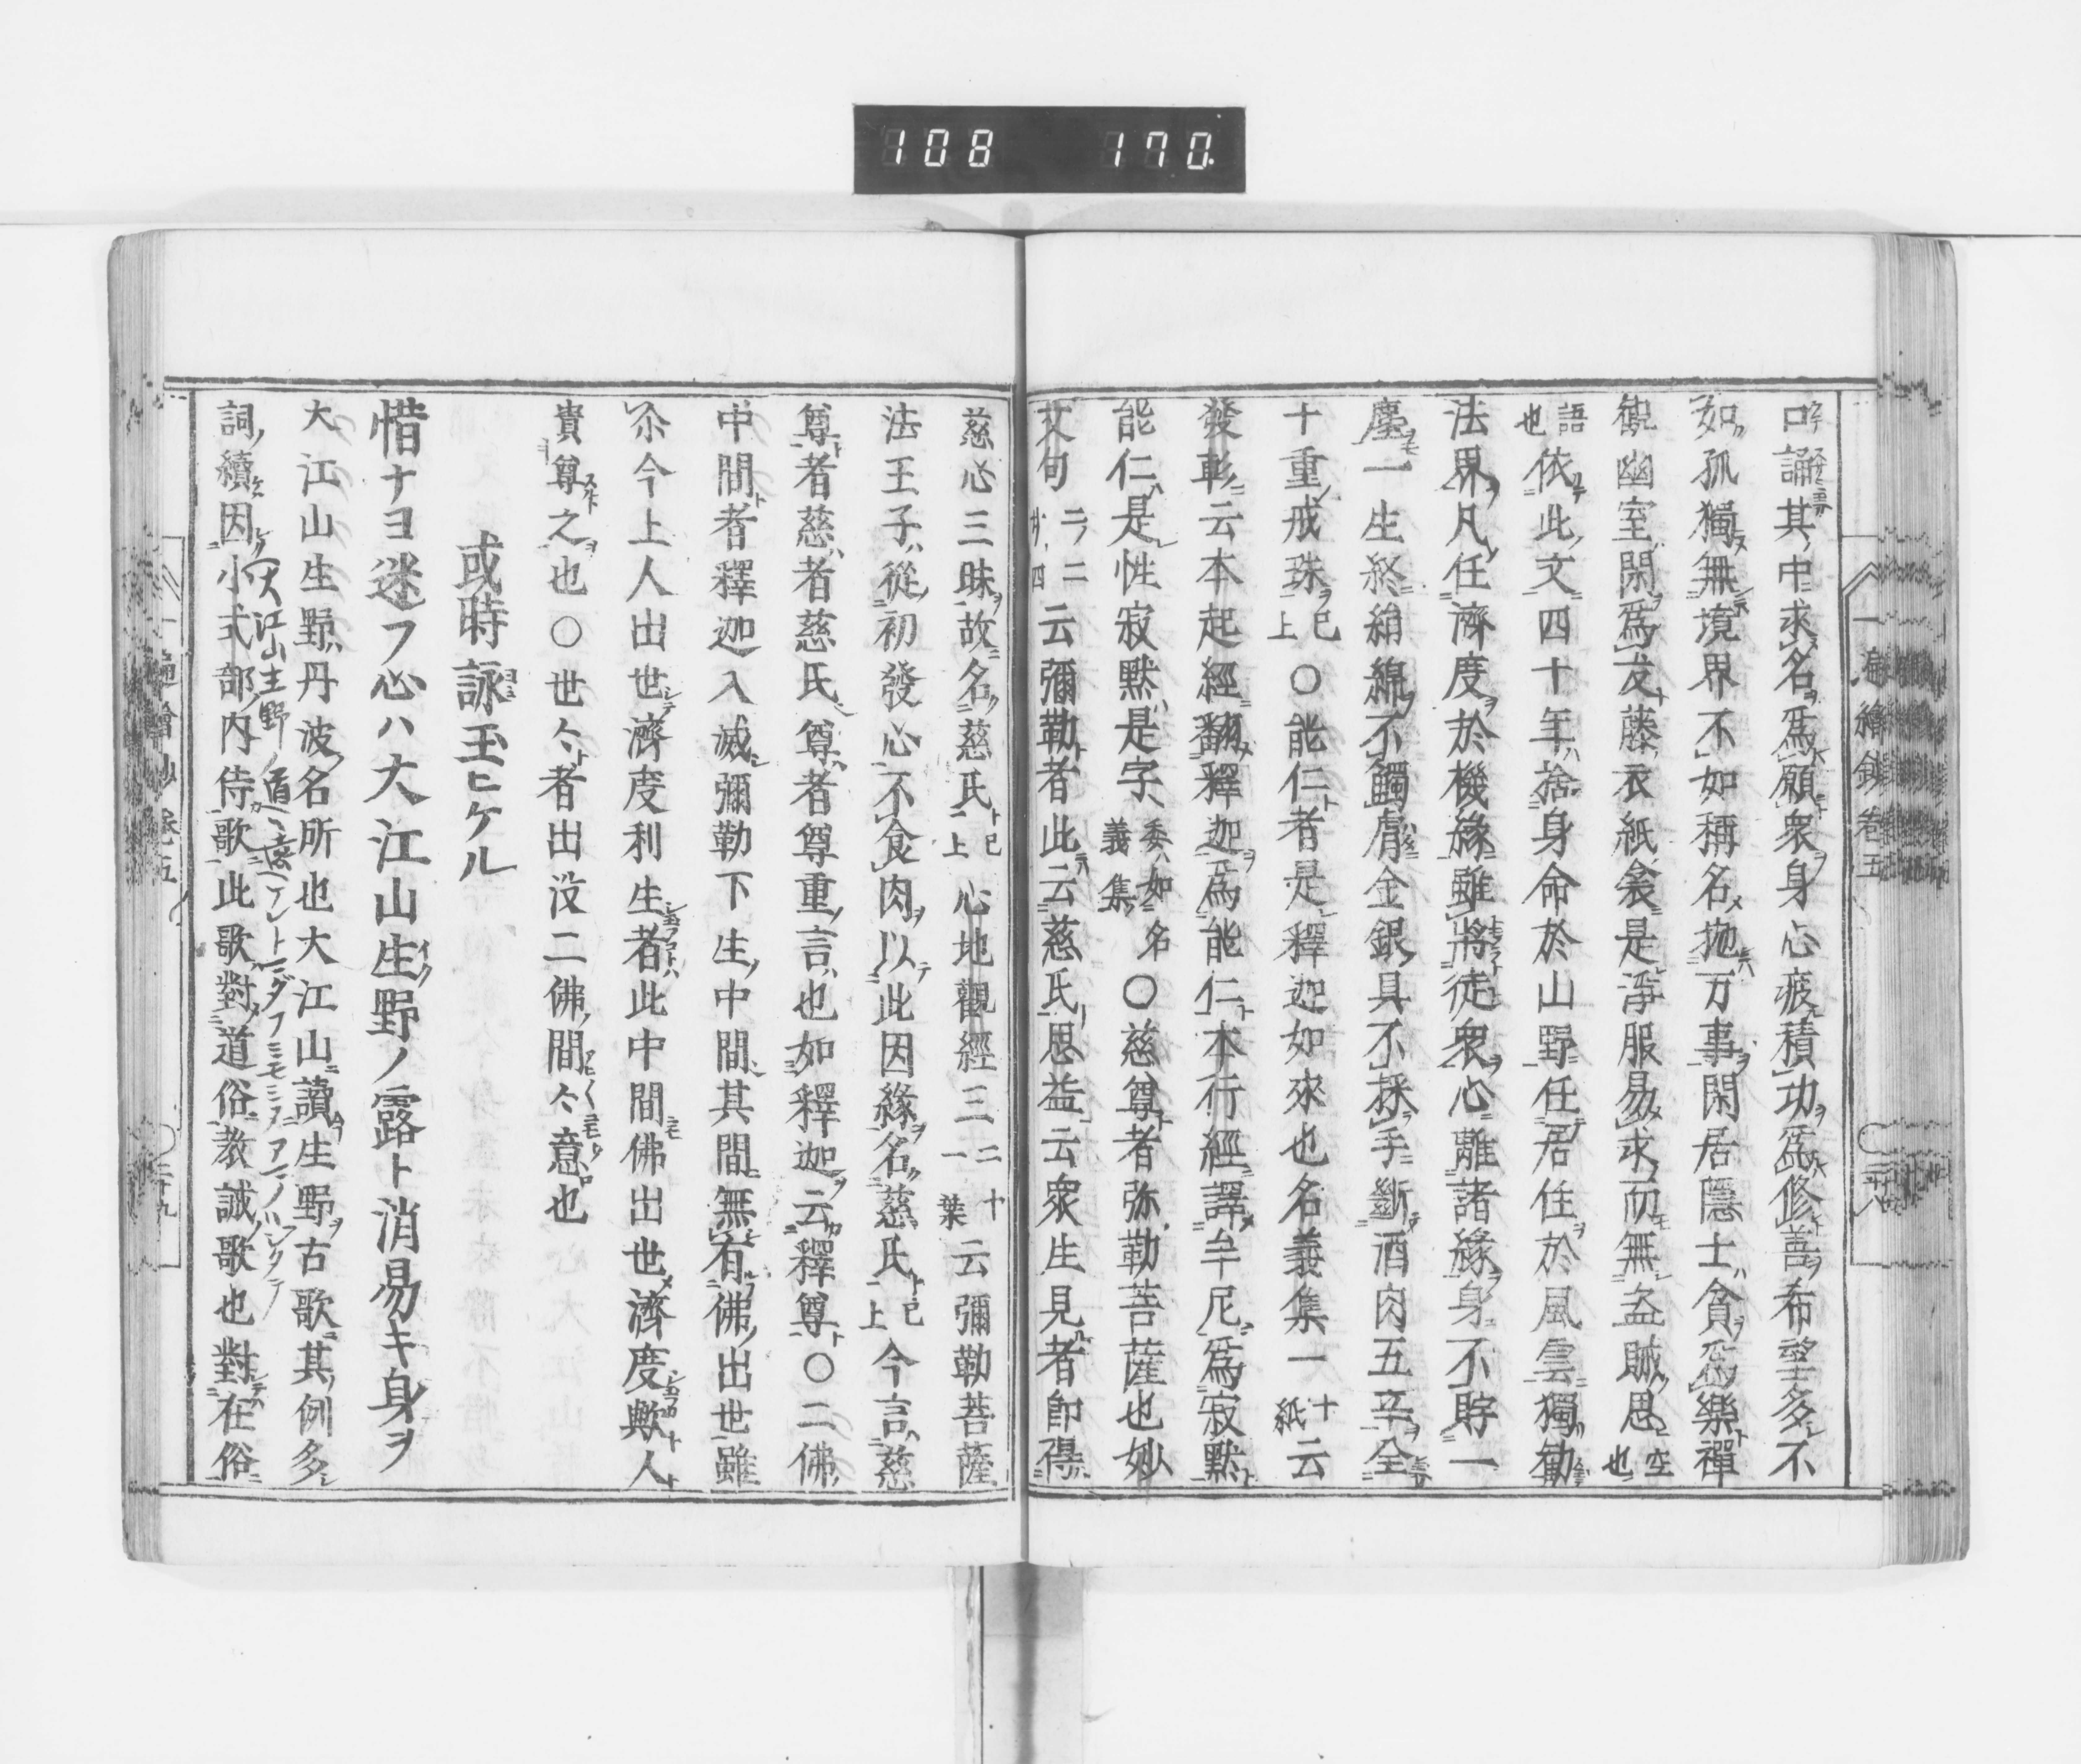 108 170
口誦其中求名爲願衆身心疲積功爲修善希望多不
如孤獨無境界不如稱名抛万事閑居隱士貧爲樂禪
觀幽室閑爲友藤衣紙衾是淨服易求而無盗賊思空也
語也依此文四十年捨身命於山野任居住於風雲獨勸
法界凡任濟度於機緣雖將徒衆心離諸緣身不貯一
塵一生終絹綿不觸膚金銀具不採手斷酒肉五辛全
十重戒珠已上〇能仁者是釋迦如來也名義集一十紙云
發彰云本起經翻釋迦爲能仁本行經譯牟尼爲寂默
能仁是性寂默是字委如名義集〇慈尊者弥勒菩薩也妙
文句二ノ二廿四云彌勒者此云慈氏思益云衆生見者即得
一遍繪鈔卷五
三十八
慈心三昧故名慈氏已上心地觀經三二十一葉云彌勒菩薩
法王子從初發心不食肉以此因緣名慈氏已上今言慈
尊者慈者慈氏尊者尊重言也如釋迦云釋尊〇二佛
中間者釋迦入滅彌勒下生中間其間無有佛出世雖
尒今上人出世濟度利生者此中間佛出世濟度歟人
貴尊之也〇世々者出没二佛間々意也
或時詠玉ヒケル
惜ナヨ迷フ心ハ大江山生野ノ露ト消易キ身ヲ
大江山生野丹波名所也大江山讀生野古歌其例多
詞續因小式部内侍歌此歌對道俗教誡歌也對在俗
大江山生野ノ道ノ遠ケレハマタフミモミスアマノハシタテ
一遍繪鈔卷五
三十九